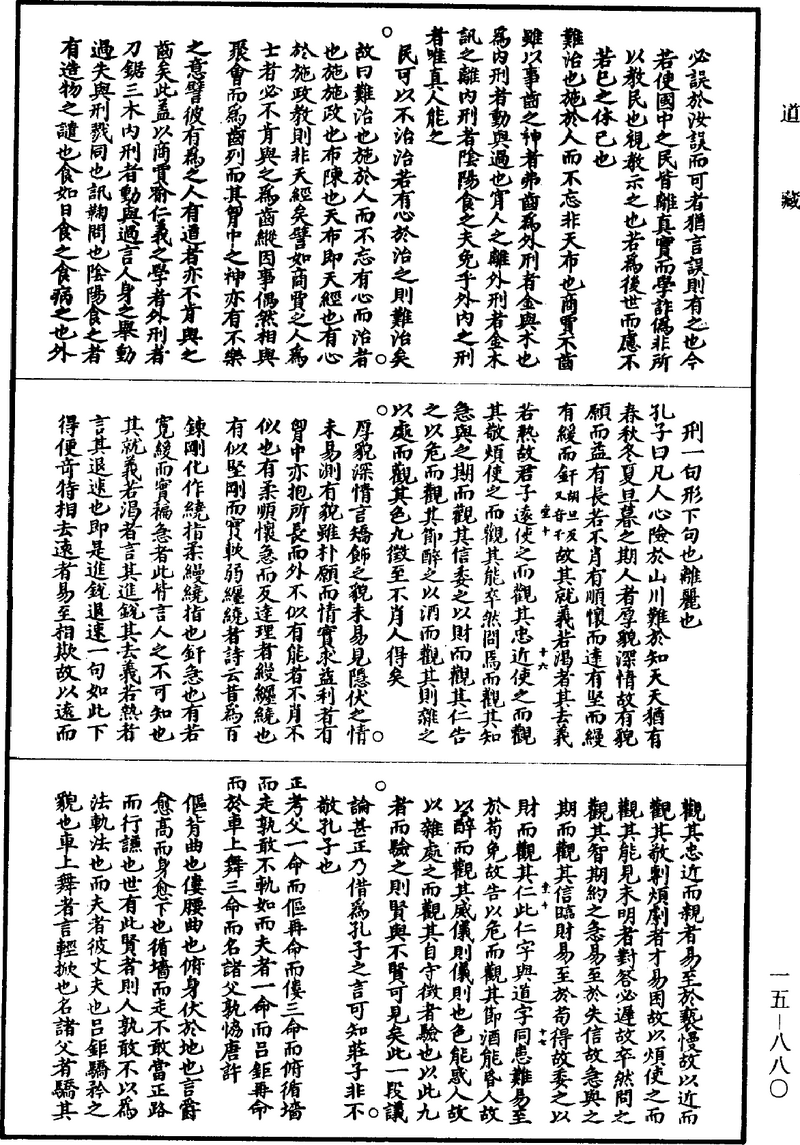 道藏
必誤於汝誤而可者猶言誤則有之也今
若使國中之民皆離真實而學詐偽非所
以教民也視教示之也若為後世而慮不
若已之休已也
難治也施於人而不忘非天布也商賈不齒
雖以事齒之神者弗齒為外刑者金與木也
為內刑者動與過也宵人之離外刑者金木
訊之離內刑者陰陽食之夫免乎外內之刑
者唯真人能之
民可以不治治若有心於治之則難治矣
故曰難治也施於人而不忘有心而治者
也施施政也布陳也天布即天經也有心
於施政教則非天經矣譬如商賈之人為
士者必不肯與之為齒縱因事偶然相與
聚會而為齒列而其胷中之神亦有不樂
之意譬彼有為之人有道者亦不肯與之
齒矣此蓋以商賈喻仁義之學者外刑者
刀鋸三木內刑者動與過言人身之舉動
過失與刑戮同也訊鞠問也陰陽食之者
有造物之譴也食如日食之食病之也外
刑一句形下句也離麗也
孔子曰凡人心險於山川難於知天天猶有
春秋冬夏旦暮之期人者厚貌深情故有貌
願而益有長若不肖有順懷而達有堅而縵
有緩而釬胡旦反又音干故其就義若渴者其去義
若熱故君子遠使之而觀其忠近使之而觀
其敬煩使之而觀其能卒然問焉而觀其知
急與之期而觀其信委之以財而觀其仁告
之以危而觀其節醉之以酒而觀其則雜之
以處而觀其色九徵至不肖人得矣
厚貌深情言矯飾之貌未易見隱伏之情
未易測有貌雖朴願而情實求益利者有
胷中亦抱所長而外不似有能者不肖不
似也有柔順懷急而反達理者縵纏繞也
有似堅剛而實軟弱纏繞者詩云昔為百
鍊剛化作繞指柔縵繞指也釬急也有若
寬緩而實褊急者此皆言人之不可知也
其就義若渴者言其進銳其去義若熱者
言其退速也即是進銳退速一句如此下
得便奇特相去遠者易至相欺故以遠而
觀其忠近而親者易至於褻慢故以近而
觀其敬剸煩劇者才易困故以煩使之而
觀其能見未明者對答必遲故卒然問之
觀其智期約之急易至於失信故急與之
期而觀其信臨財易至於苟得故委之以
財而觀其仁此仁字與道字同患難易至
於苟免故告以危而觀其節酒能昏人故
以醉而觀其威儀則儀則也色能惑人故
以雜處之而觀其自守徵者驗也以此九
者而驗之則賢與不賢可見矣此一段議
論甚正乃借為孔子之言可知莊子非不
敬孔子也
正考父一命而傴再命而僂三命而俯循墻
而走孰敢不軌如而夫者一命而呂鉅再命
而於車上舞三命而名諸父孰協唐許
傴背曲也僂腰曲也俯身伏於地也言爵
愈高而身愈下也循墻而走不敢當正路
而行謙也世有此賢者則人孰敢不以為
法軌法也而夫者彼丈夫也呂鉅驕矜之
貌也車上舞者言輕掀也名諸父者驕其
一五—八八〇